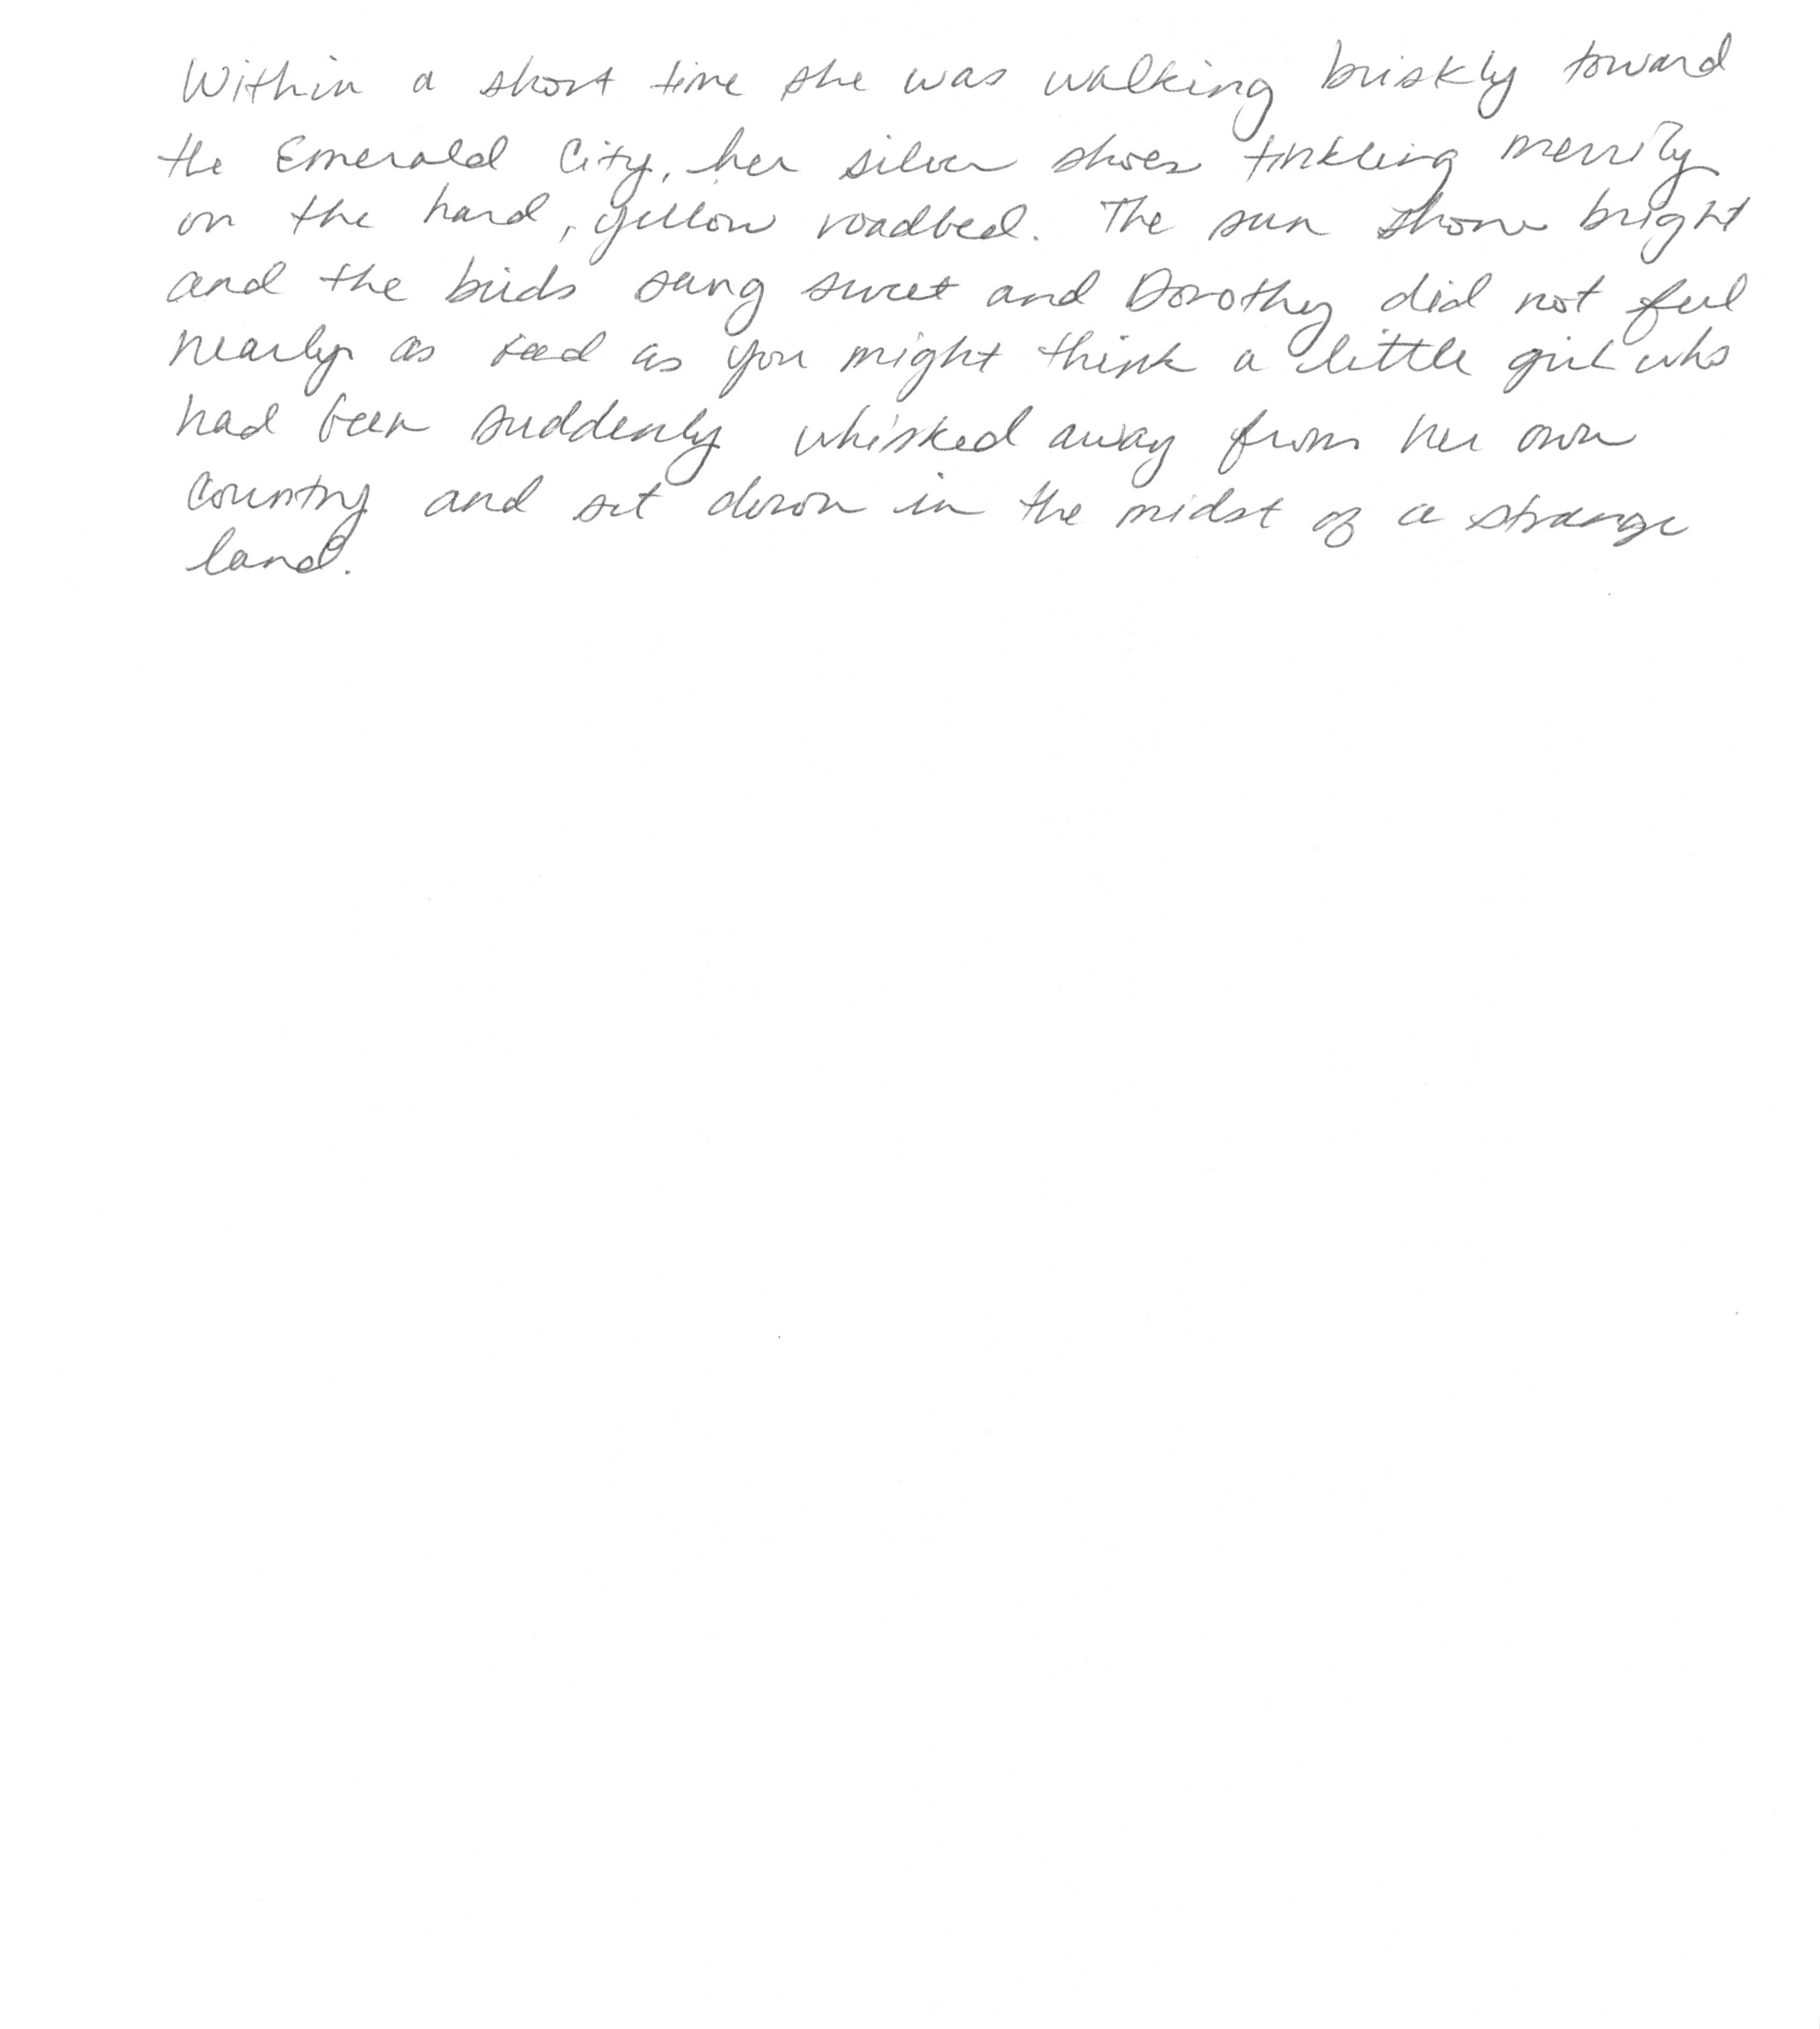 Within a short time she was walking briskly toward
the Emerald City, her silver shoes tinkling merrily
on the hard, yellow roadbed. The sun shone bright
and the birds sang sweet and Dorothy did not feel
nearly as sad as you might think a little girl who
had been suddenly whisked away from her own
country and set down in the midst of a strange
land.